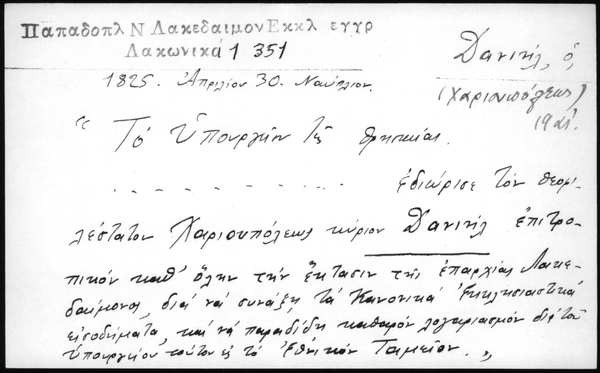 Παπαδοπλ Ν Λακεδαιμον Εκκλ εγγρ
Λακωνικά 1 351
Δανιήλ, ὁ,
(Χαριουπόλεως)
1825. Ἀπριλίου 30. Ναύπλιον.
"Τὸ Ὑπουργεῖον τῆς θρησκείας.
. . . . . . . . . . ἐδιώρισε τὸν θεοφι-
λέστατον Χαριουπόλεως κύριον Δανιήλ ἐπιτρο-
πικόν καθ' ὅλην τὴν ἔκτασιν τῆς ἐπαρχίας Λακε-
δαίμονος, διά νά συνάξῃ τά Κανονικά Ἐκκλησιαστικά
εἰσοδήματα, καί νά παραδίδῃ καθαρόν λογαριασμόν διά τοῦ
Ὑπουργείου τούτου εἰς τό Ἐθνικόν Ταμεῖον."